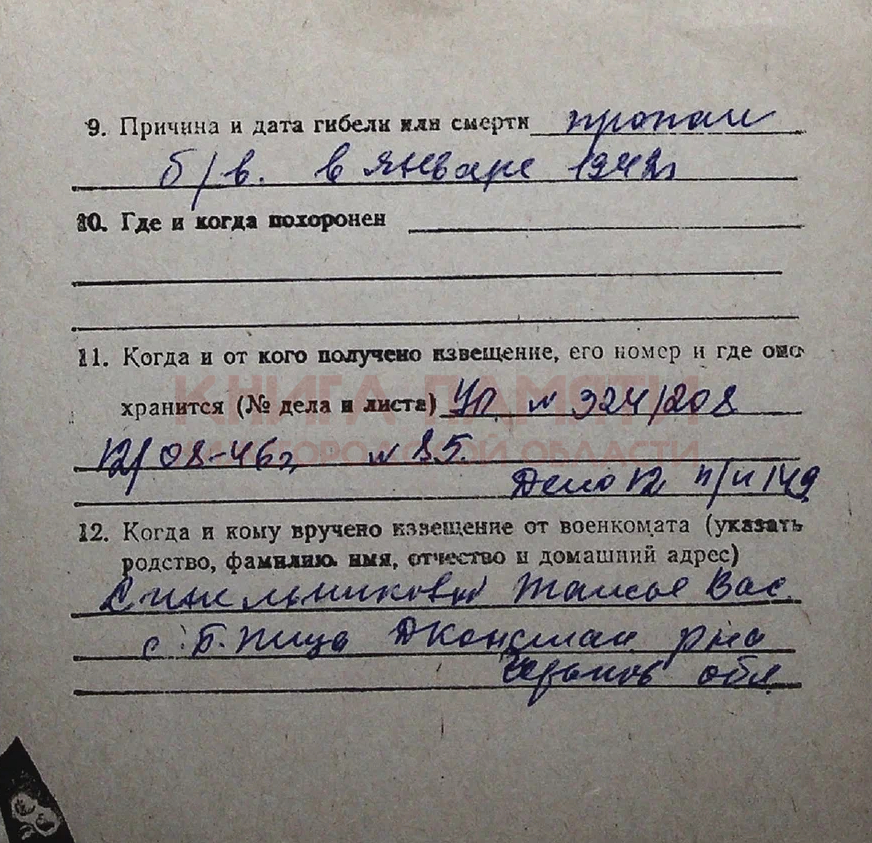 9. Причина и дата гибели или смерти пропал
б/в. в январе 1942г
10. Где и когда похоронен
11. Когда и от кого получено извещение, его номер и где оно
КНИГА ПАМЯТИ
хранится (№ дела и листа) Уп. № 324/208
НИЖЕГОРОДСКОЙ ОБЛАСТИ
12/08-46г № 85.
Дело 12 п/н 149
12. Когда и кому вручено извещение от военкомата (указать
родство, фамилию, имя, отчество и домашний адрес)
Синельниковой Таисье Вас.
с. Б. Пица Дконстан р-на
Горьков обл